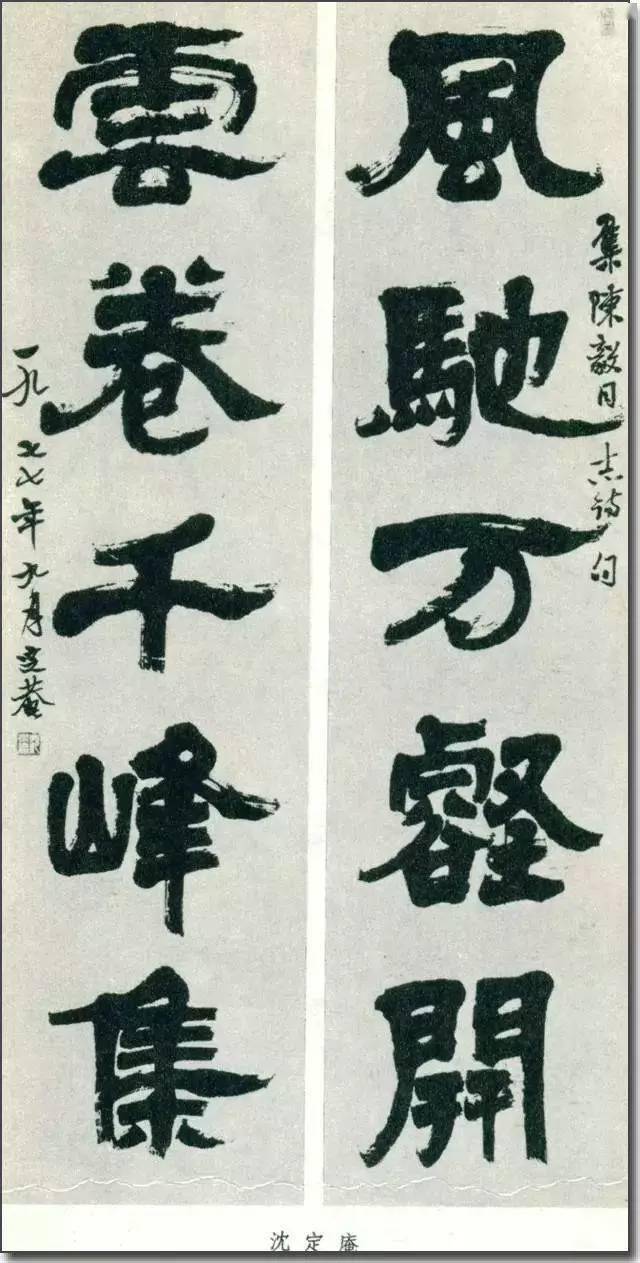 集陳毅同志詩句
風馳万壑開
雲卷千峰集
一九七七年九月定菴
沈定庵